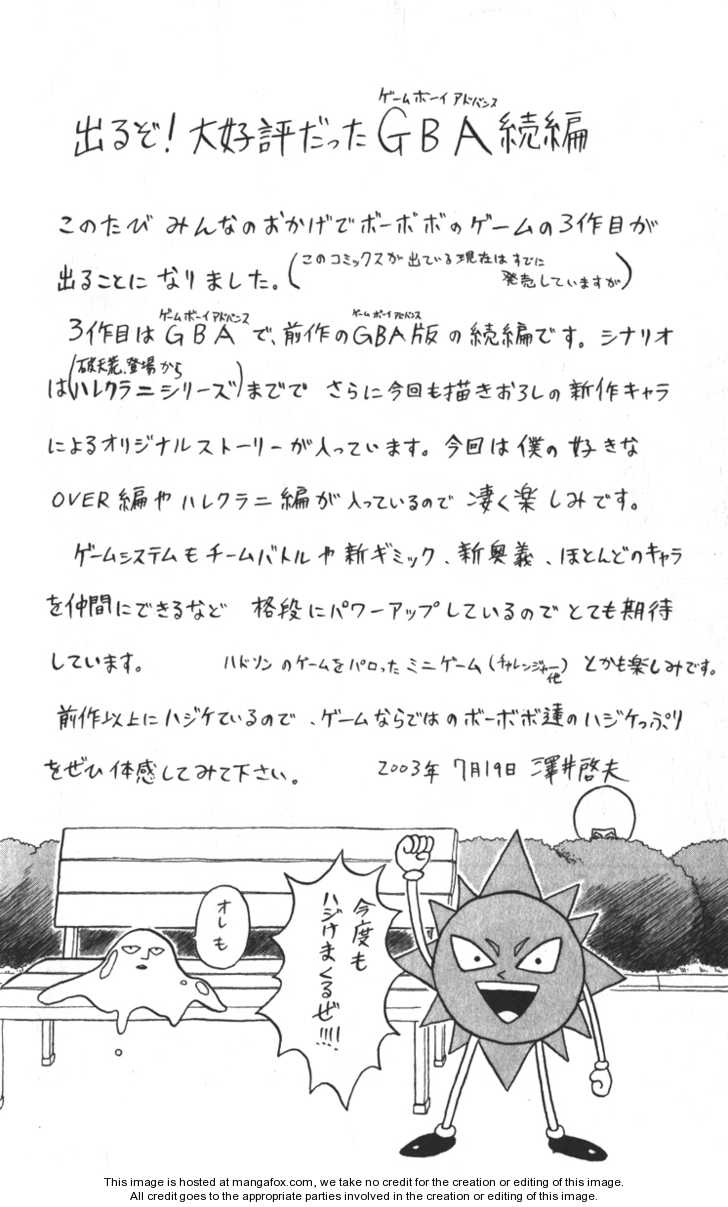 ゲームボーイアドバンス
出るぞ!大好評だったGBA続編
このたび みんなのおかげでボーボボのゲームの3作目が
出ることになりました。(このコミックスが出ている現在はすでに
発売していますが)
ゲームボーイアドバンス ゲームボーイアドバンス
3作目はGBAで、前作のGBA版の続編です。シナリオ
は(破天荒登場から
ハレクラニシリーズ)までで さらに今回も描きおろしの新作キャラ
によるオリジナルストーリーが入っています。今回は僕の好きな
OVER編やハレクラニ編が入っているので凄く楽しみです。
ゲームシステムもチームバトルや新ギミック、新奥義、ほとんどのキャラ
を仲間にできるなど 格段にパワーアップしているのでとても期待
しています。 ハドソンのゲームをパロったミニゲーム(チャレンジャー他)とかも楽しみです。
前作以上にハジケているので、ゲームならではのボーボボ達のハジケっぷり
をぜひ体感してみて下さい。 2003年 7月19日 澤井啓夫
今度も
ハジけまくるぜ!!!!
オレも
This image is hosted at mangafox.com, we take no credit for the creation or editing of this image.
All credit goes to the appropriate parties involved in the creation or editing of this image.